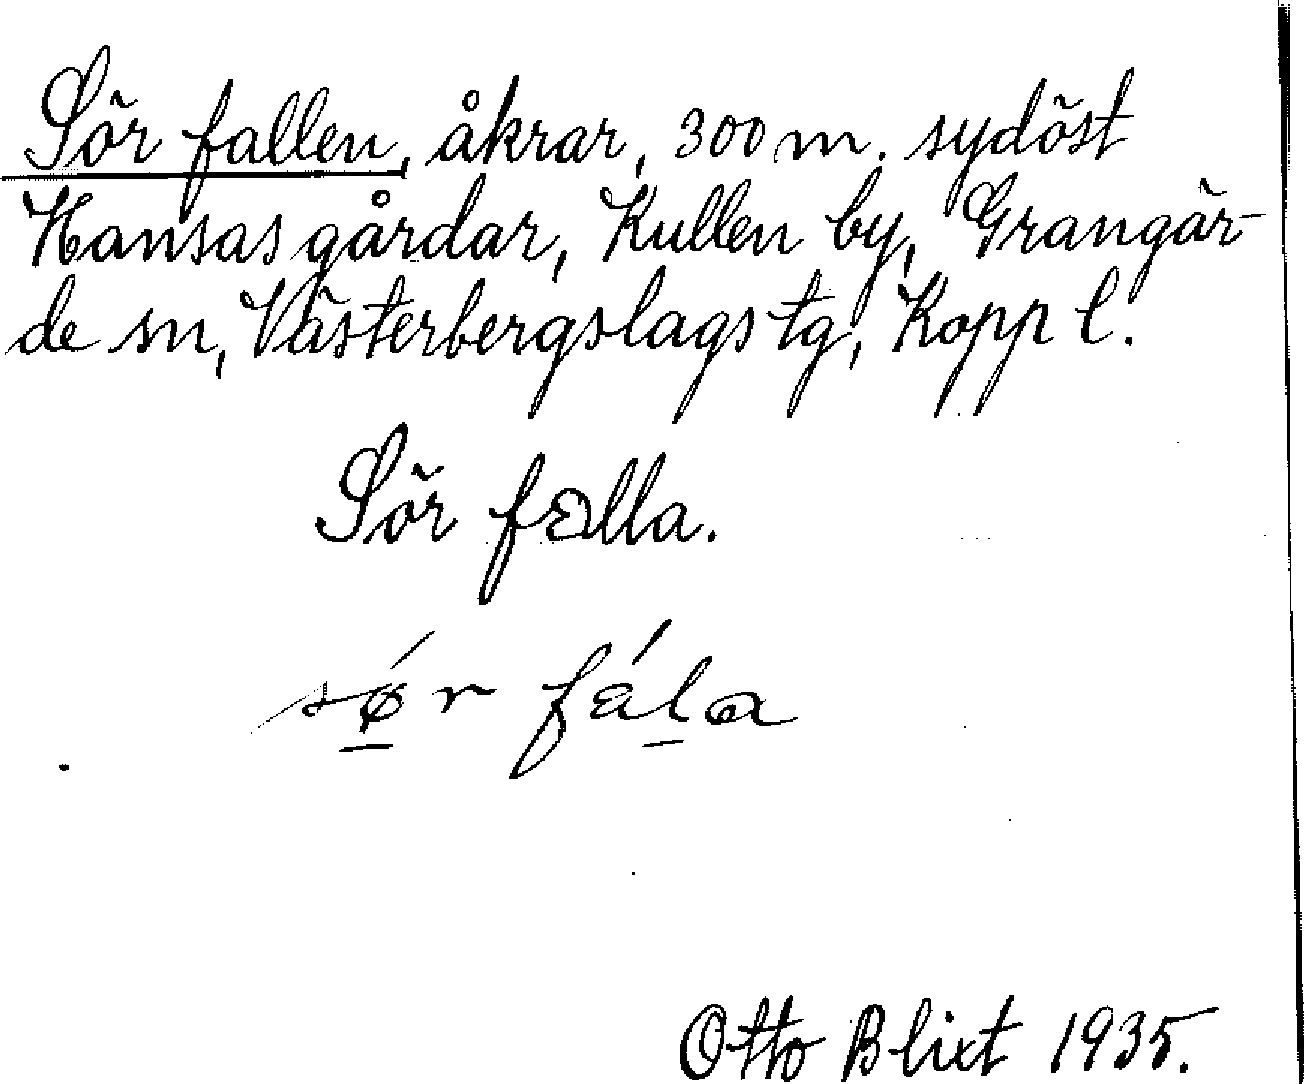 Sör fallen, åkrar, 300 m. sydöst
Hansas gårdar, Kullen by, Grangär-
de sn, Västerbergslags tg, Kopp l.
Sör falla.
sǿr fála
Otto Blixt 1935.